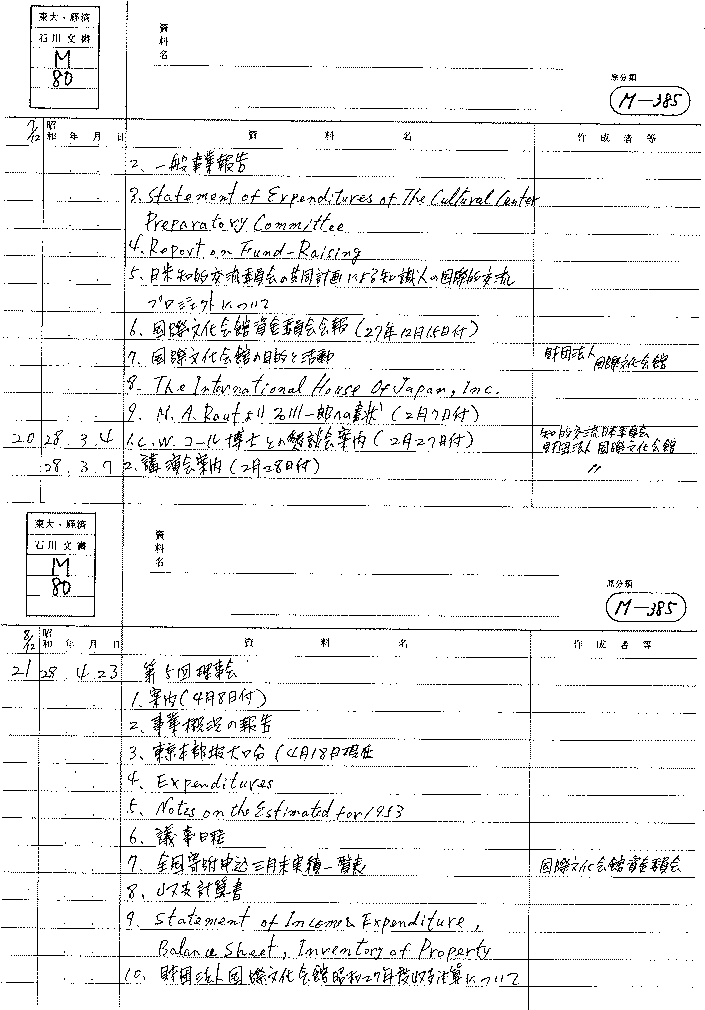 東大・経済
石川文書
M
80
資料名
原分類
M-385
7/12 昭和 年 月 日 資料名 作成者等
2、一般事業報告
3、Statement of Expenditures of The Cultural Center
Preparatory Committee
4、Report on Fund-Raising
5、日米知的交流委員会の共同計画による知識人の国際的交流
プロジェクトについて
6、国際文化会館資金委員会会報(27年12月15日付)
7、国際文化会館の目的と活動 財団法人国際文化会館
8、The International House Of Japan, Inc.
9、M.A.Rautより石川一郎への書状(2月7日付)
20 28.3.4 1.C.W.コール博士との懇談会案内(2月27日付) 知的交流日本委員会
財団法人国際文化会館
28.3.7 2、講演会案内(2月28日付) 〃
東大・経済
石川文書
M
80
資料名
原分類
M-385
8/12 昭和 年 月 日 資料名 作成者等
21 28.4.23 第5回理事会
1、案内(4月8日付)
2、事業概況の報告
3、東京本部拡大口分(4月18日現在
4、Expenditures
5、Notes on the Estimated for 1953
6、議事日程
7、全国寄附申込三月末実績一覧表 国際文化会館資金委員会
8、収支計算書
9、Statement of Income & Expenditure,
Balance Sheet, Inventory of Property
10、財団法人国際文化会館昭和27年度収支決算について